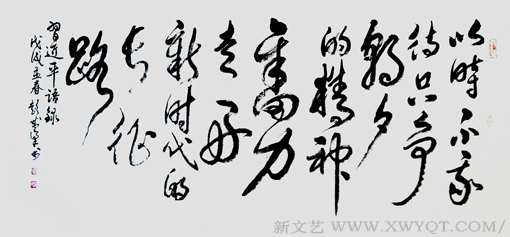 以時不我
待只争
朝夕
的精神
奮力
走好
新时代的
长征
路
習近平語録
戊戌孟春 彭 书
新文艺 WWW.XWYQT.COM/